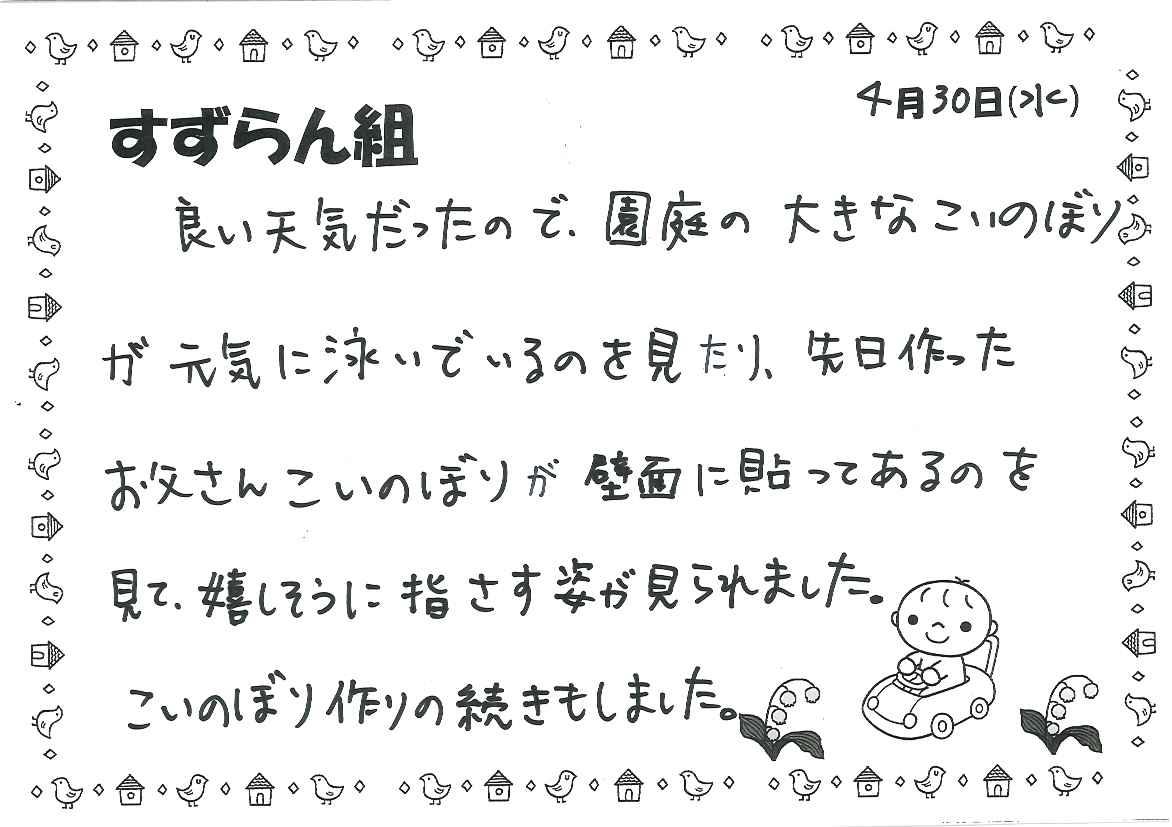 4月30日(水)
すずらん組
良い天気だったので、園庭の大きなこいのぼり
が元気に泳いでいるのを見たり、先日作った
お父さんこいのぼりが壁面に貼ってあるのを
見て、嬉しそうに指さす姿が見られました。
こいのぼり作りの続きもしました。